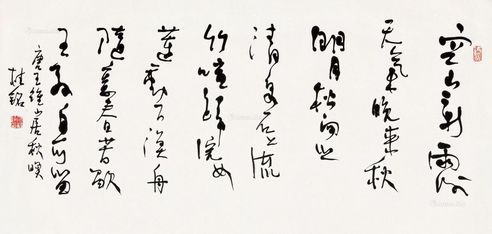 空山新雨後
天氣晚來秋
明月松間照
清泉石上流
竹喧歸浣女
蓮動下漁舟
隨意春芳歇
王孫自可留
唐王維山居秋暝
桂銘